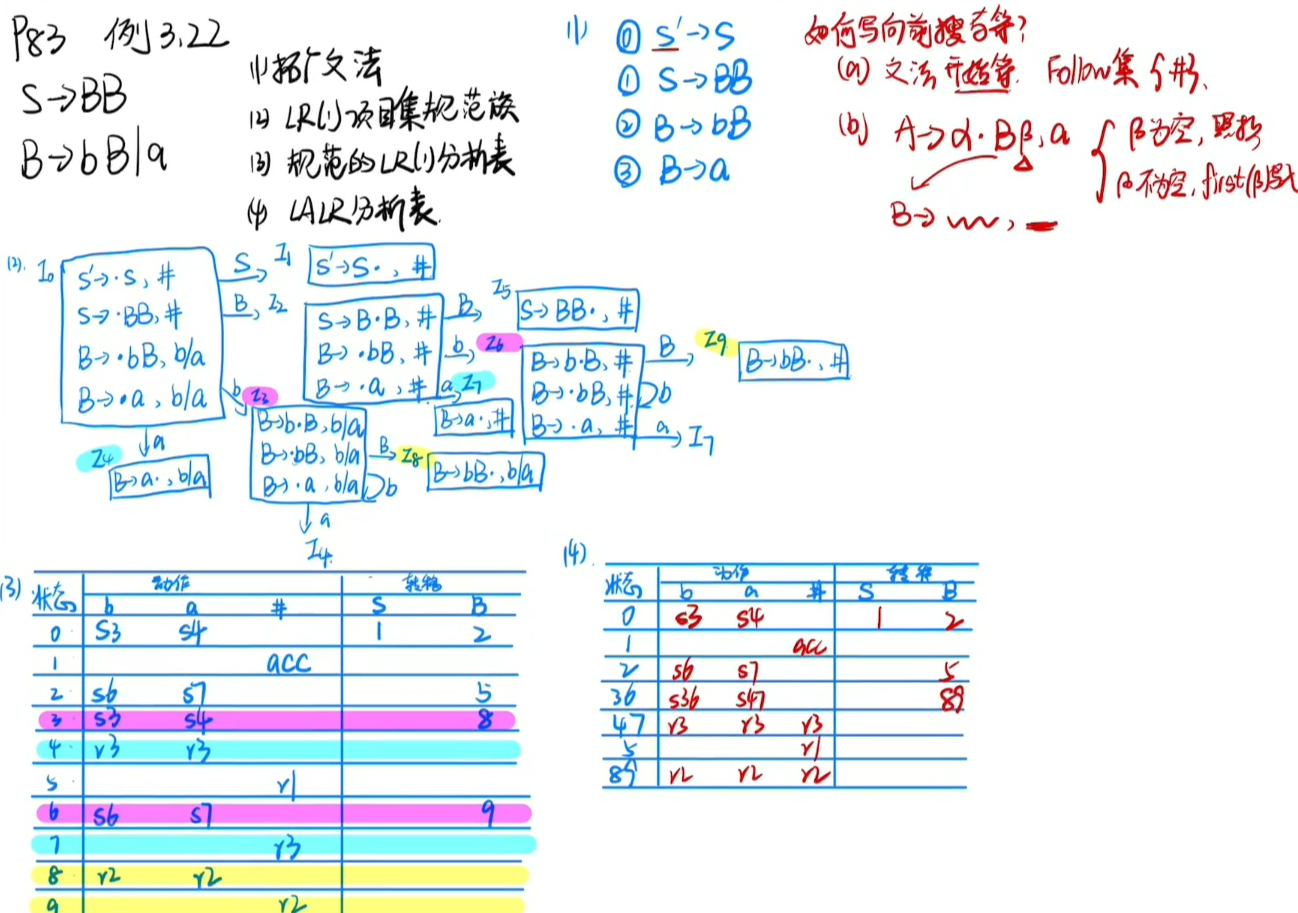 P83 例3.22
S→BB
B→bB|a
(1)拓广文法
(2) LR(1)项目集规范族
(3) 规范的LR(1)分析表
(4) LALR分析表.
(1) ⓪ S'→S
① S→BB
② B→bB
③ B→a
如何写向前搜索符?
(a) 文法开始符. Follow集 {#}.
(b) A→α·Bβ, a { β为空, 照抄
β不为空, first(β)
B→ ,
(2). I0
S'→·S, #
S→·BB, #
B→·bB, b/a
B→·a, b/a
S I1 S'→S·, #
B I2
S→B·B, #
B→·bB, #
B→·a, #
B I5 S→BB·, #
b I6
B→b·B, #
B→·bB, #
B→·a, #
B I9 B→bB·, #
b
a I7
a I7
B→a·, #
b I3
B→b·B, b/a
B→·bB, b/a
B→·a, b/a
B I8 B→bB·, b/a
b
a
I4.
a
I4
B→a·, b/a
(3) 状态 动作 转移
b a # S B
0 S3 S4 1 2
1 acc
2 S6 S7 5
3 S3 S4 8
4 r3 r3
5 r1
6 S6 S7 9
7 r3
8 r2 r2
9 r2
(4).
状态 动作 转移
b a # S B
0 S3 S4 1 2
1 acc
2 S6 S7 5
36 S36 S47 89
47 r3 r3 r3
5 r1
89 r2 r2 r2